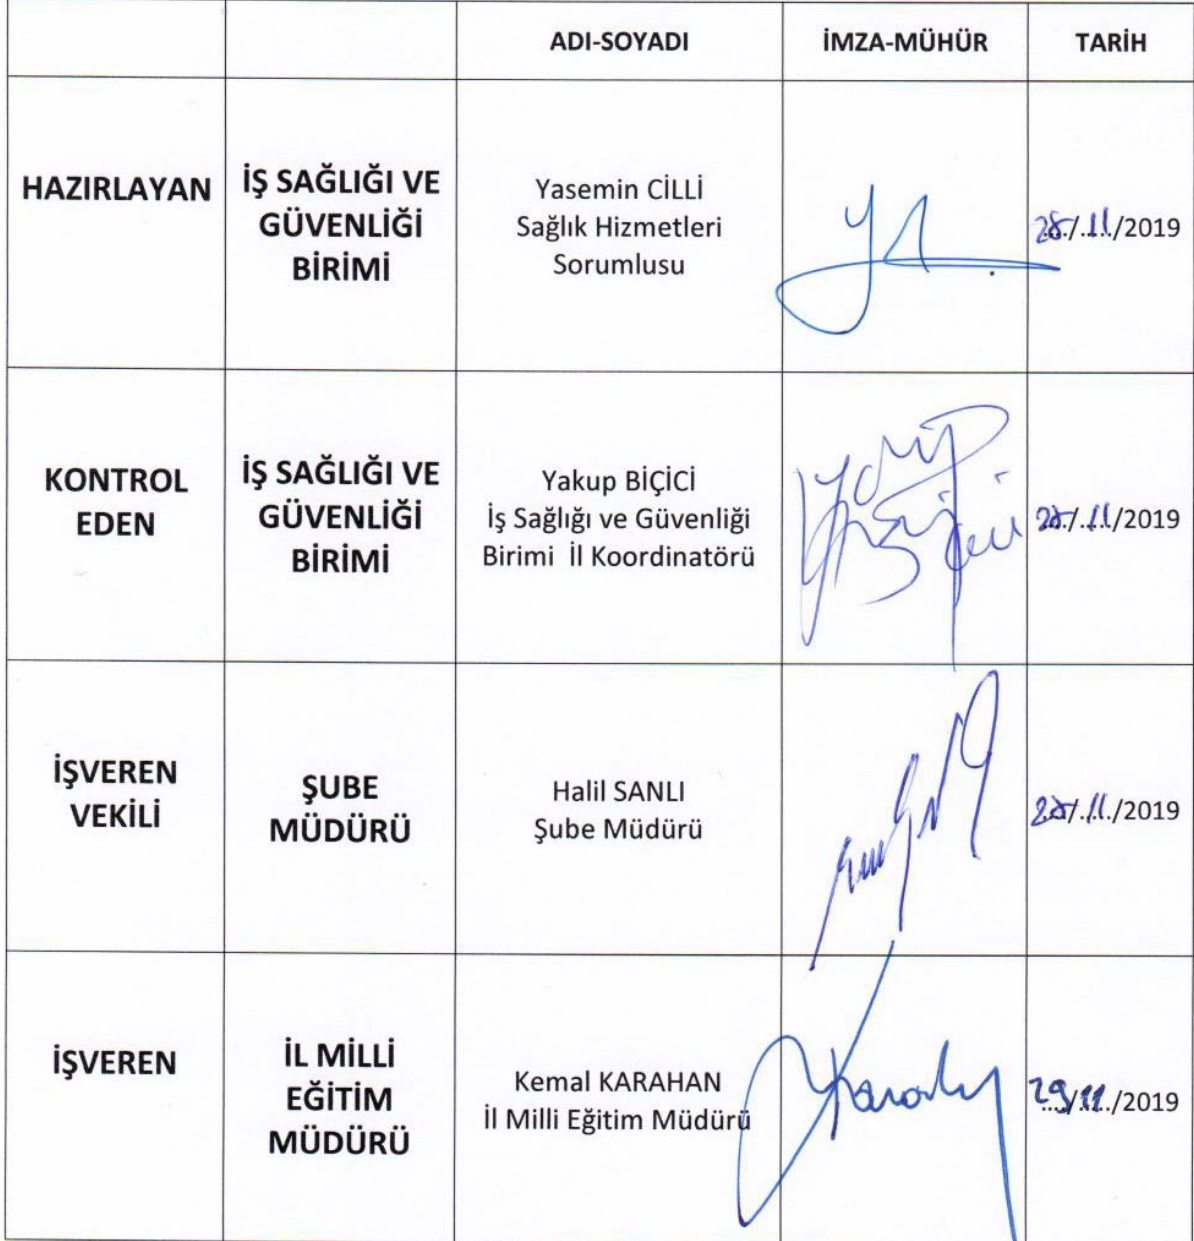 ADI-SOYADI İMZA-MÜHÜR TARİH
HAZIRLAYAN
İŞ SAĞLIĞI VE
GÜVENLİĞİ
BİRİMİ
Yasemin CİLLİ
Sağlık Hizmetleri
Sorumlusu
28/11/2019
KONTROL
EDEN
İŞ SAĞLIĞI VE
GÜVENLİĞİ
BİRİMİ
Yakup BİÇİCİ
İş Sağlığı ve Güvenliği
Birimi İl Koordinatörü
28/11/2019
İŞVEREN
VEKİLİ
ŞUBE
MÜDÜRÜ
Halil SANLI
Şube Müdürü
28/11/2019
İŞVEREN
İL MİLLİ
EĞİTİM
MÜDÜRÜ
Kemal KARAHAN
İl Milli Eğitim Müdürü
29/11/2019